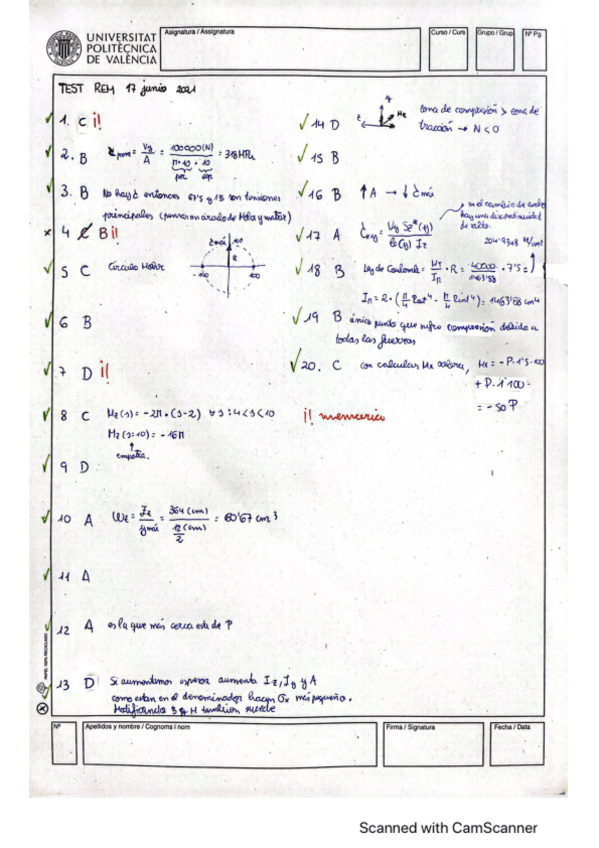 UNIVERSITAT
POLITÈCNICA
DE VALÈNCIA
Asignatura / Assignatura
Curso / Curs
Grupo / Grup
Nº Pg.
TEST REM 17 junio 2021
1. C ¡!
2. B τ = Vy / A = 100000(N) / = 318 MPa
3. B No hay τ entonces 67'5 y 15 son tensiones
principales (pensar en círculo de Mohr y matriz)
4 C B ¡!
5 C Círculo Mohr
τmáx
R
-100
100
6 B
7 D ¡!
8 C Mz(s) = -2P · (s-2) ∀ s : 4<s<10
Mz(s=10) = -16P
9 D
10 A Wz = Iz / ymáx = 364 (cm) / 12 (cm) / 2 = 60'67 cm³
11 A
12 A es la que más cerca está de P
13 D Si aumentamos espesor aumenta Iz, Iy y A
como están en el denominador hacen σx más pequeño.
Modificando B y H también sucede
14 D y z Mz zona de compresión > zona de
tracción → N < 0
15 B
16 B ↑A → ↓ τmáx
17 A τxy = Vy Sz*(y) / e(y) Iz
hay una discontinuidad
18 B Ley de Coulomb = MT / IR · R = 40000 / 1463'88 · 7'5 =
204'9348
IR = 2 · (π/4 Rext⁴ - π/4 Rint⁴) = 1463'88 cm⁴
19 B único punto que sufre compresión debido a
todas las fuerzas
20. C con calcular Mx valdría, Mx = -P · 1'5 · 100
+ P · 1 · 100 =
= -50 P
¡! memorico
PAPEL 100% RECICLADO
Nº
Apellidos y nombre / Cognoms i nom
Firma / Signatura
Fecha / Data
Scanned with CamScanner